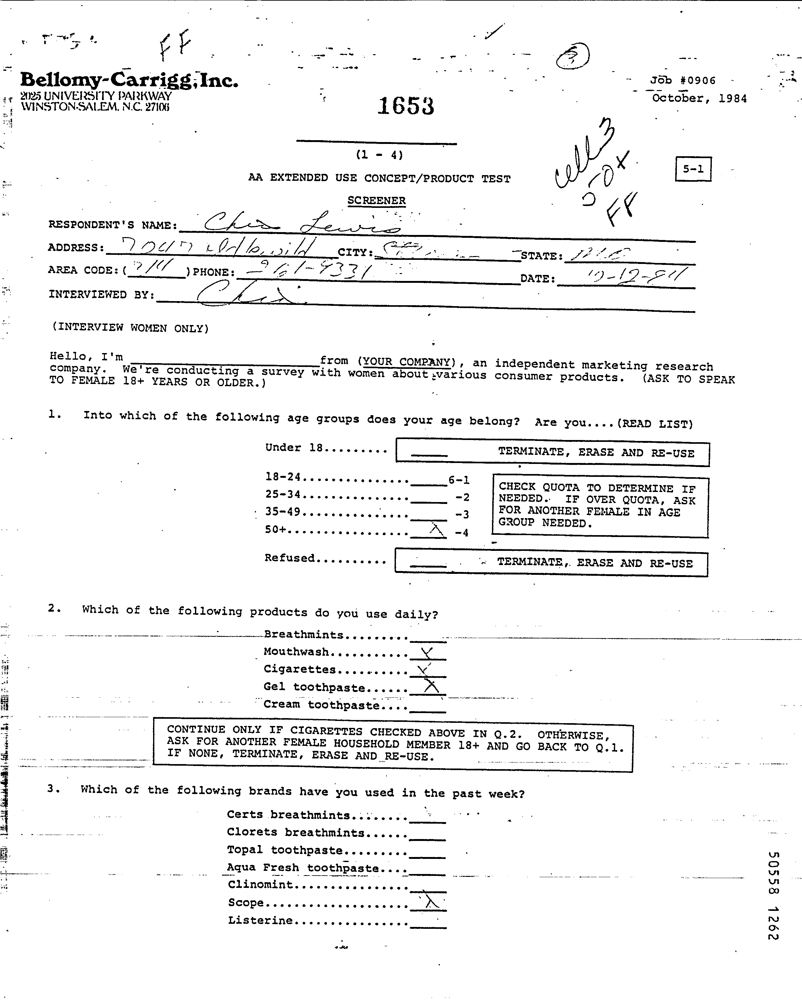 FF
3
Bellomy-Carrigg, Inc.
2025 UNIVERSITY PARKWAY
WINSTON-SALEM, N.C. 27106
Job #0906
October, 1984
1653
(1 - 4)
cell 3
FF
5-1
AA EXTENDED USE CONCEPT/PRODUCT TEST
SCREENER
RESPONDENT'S NAME: Chis Lewis
ADDRESS: CITY: STATE:
AREA CODE: ( ) PHONE: DATE: 10-12-84
INTERVIEWED BY:
(INTERVIEW WOMEN ONLY)
Hello, I'm ____________________ from (YOUR COMPANY), an independent marketing research
company. We're conducting a survey with women about various consumer products. (ASK TO SPEAK
TO FEMALE 18+ YEARS OR OLDER.)
1. Into which of the following age groups does your age belong? Are you....(READ LIST)
Under 18......... ____ TERMINATE, ERASE AND RE-USE
18-24............... ____ 6-1
25-34............... ____ -2
35-49............... ____ -3
50+................. X -4
CHECK QUOTA TO DETERMINE IF
NEEDED. IF OVER QUOTA, ASK
FOR ANOTHER FEMALE IN AGE
GROUP NEEDED.
Refused.......... ____ TERMINATE, ERASE AND RE-USE
2. Which of the following products do you use daily?
Breathmints......... ____
Mouthwash........... X
Cigarettes.......... X
Gel toothpaste...... X
Cream toothpaste.... ____
CONTINUE ONLY IF CIGARETTES CHECKED ABOVE IN Q.2. OTHERWISE,
ASK FOR ANOTHER FEMALE HOUSEHOLD MEMBER 18+ AND GO BACK TO Q.1.
IF NONE, TERMINATE, ERASE AND RE-USE.
3. Which of the following brands have you used in the past week?
Certs breathmints........ ____
Clorets breathmints...... ____
Topal toothpaste......... ____
Aqua Fresh toothpaste.... ____
Clinomint................ ____
Scope.................... X
Listerine................ ____
50558 1262